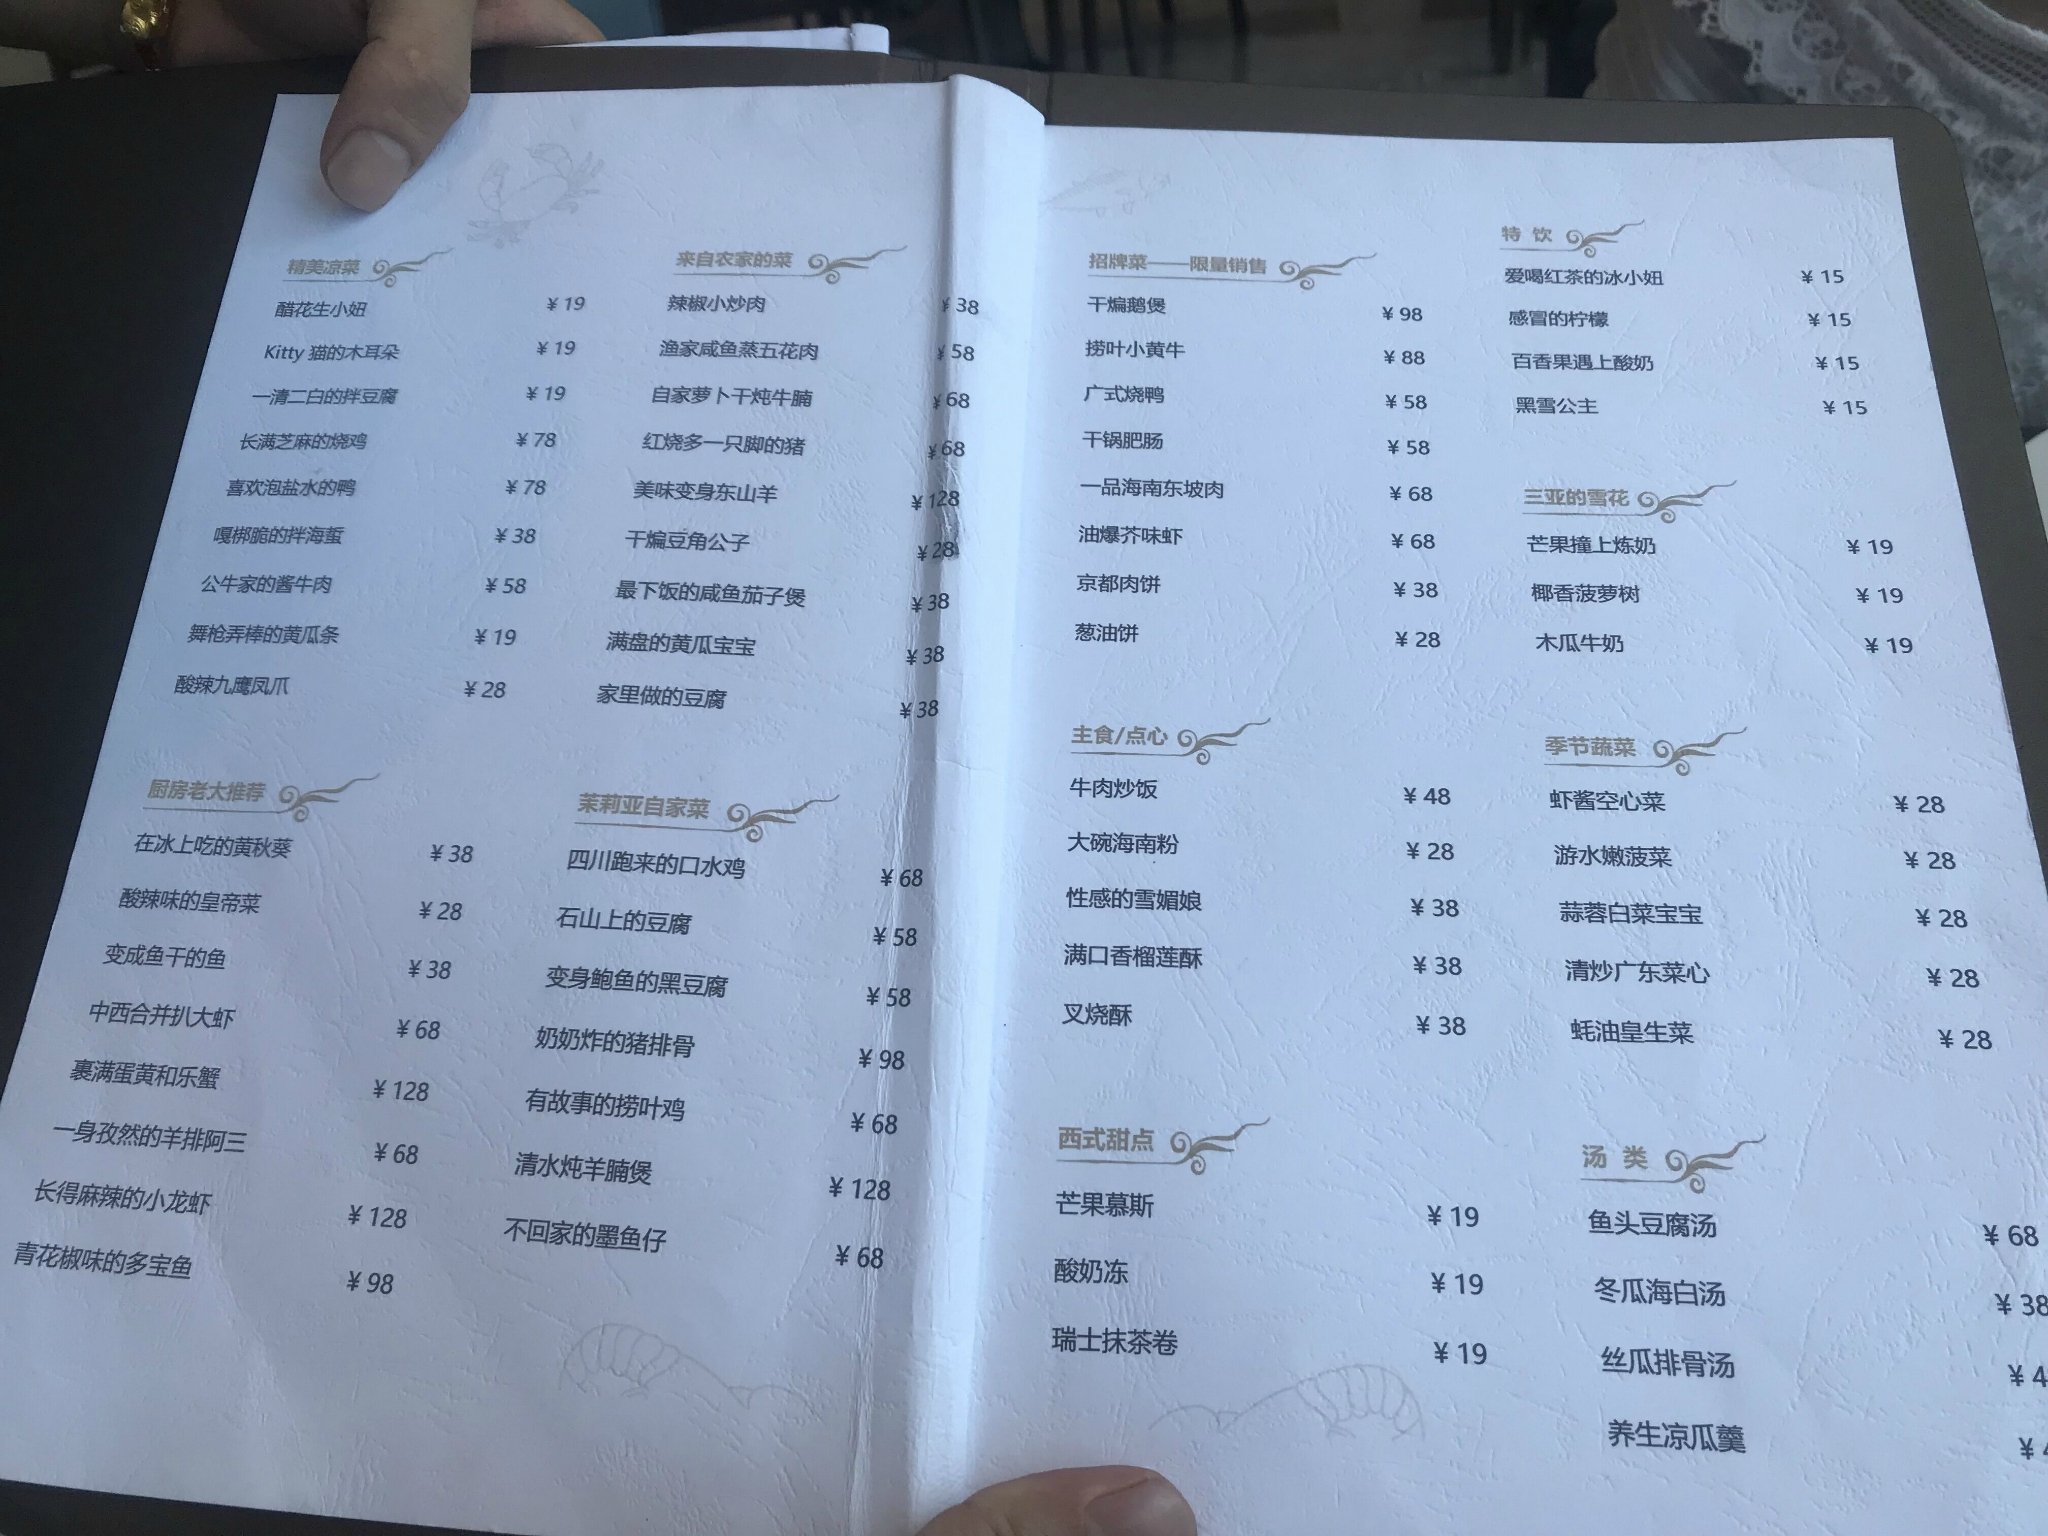 精美凉菜
醋花生小妞 ¥ 19
Kitty 猫的木耳朵 ¥ 19
一清二白的拌豆腐 ¥ 19
长满芝麻的烧鸡 ¥ 78
喜欢泡盐水的鸭 ¥ 78
嘎梆脆的拌海蜇 ¥ 38
公牛家的酱牛肉 ¥ 58
舞枪弄棒的黄瓜条 ¥ 19
酸辣九鹰凤爪 ¥ 28
厨房老大推荐
在冰上吃的黄秋葵 ¥ 38
酸辣味的皇帝菜 ¥ 28
变成鱼干的鱼 ¥ 38
中西合并扒大虾 ¥ 68
裹满蛋黄和乐蟹 ¥ 128
一身孜然的羊排阿三 ¥ 68
长得麻辣的小龙虾 ¥ 128
青花椒味的多宝鱼 ¥ 98
来自农家的菜
辣椒小炒肉 ¥ 38
渔家咸鱼蒸五花肉 ¥ 58
自家萝卜干炖牛腩 ¥ 68
红烧多一只脚的猪 ¥ 68
美味变身东山羊 ¥ 128
干煸豆角公子 ¥ 28
最下饭的咸鱼茄子煲 ¥ 38
满盘的黄瓜宝宝 ¥ 38
家里做的豆腐 ¥ 38
茉莉亚自家菜
四川跑来的口水鸡 ¥ 68
石山上的豆腐 ¥ 58
变身鲍鱼的黑豆腐 ¥ 58
奶奶炸的猪排骨 ¥ 98
有故事的捞叶鸡 ¥ 68
清水炖羊腩煲 ¥ 128
不回家的墨鱼仔 ¥ 68
招牌菜——限量销售
干煸鹅煲 ¥ 98
捞叶小黄牛 ¥ 88
广式烧鸭 ¥ 58
干锅肥肠 ¥ 58
一品海南东坡肉 ¥ 68
油爆芥味虾 ¥ 68
京都肉饼 ¥ 38
葱油饼 ¥ 28
主食/点心
牛肉炒饭 ¥ 48
大碗海南粉 ¥ 28
性感的雪媚娘 ¥ 38
满口香榴莲酥 ¥ 38
叉烧酥 ¥ 38
西式甜点
芒果慕斯 ¥ 19
酸奶冻 ¥ 19
瑞士抹茶卷 ¥ 19
特 饮
爱喝红茶的冰小妞 ¥ 15
感冒的柠檬 ¥ 15
百香果遇上酸奶 ¥ 15
黑雪公主 ¥ 15
三亚的雪花
芒果撞上炼奶 ¥ 19
椰香菠萝树 ¥ 19
木瓜牛奶 ¥ 19
季节蔬菜
虾酱空心菜 ¥ 28
游水嫩菠菜 ¥ 28
蒜蓉白菜宝宝 ¥ 28
清炒广东菜心 ¥ 28
蚝油皇生菜 ¥ 28
汤 类
鱼头豆腐汤 ¥ 68
冬瓜海白汤 ¥ 38
丝瓜排骨汤 ¥ 4
养生凉瓜羹 ¥